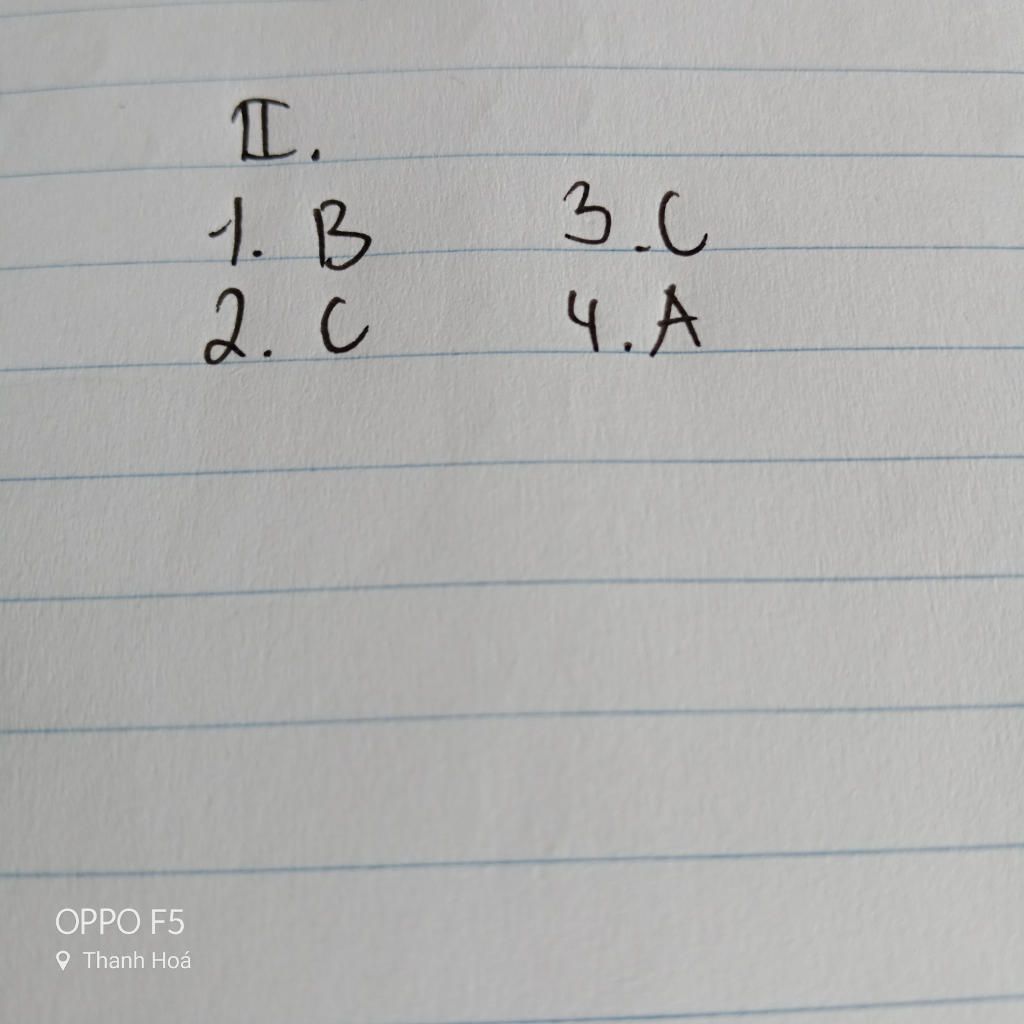 II.
1. B 3. C
2. C 4. A
OPPO F5
Thanh Hoá